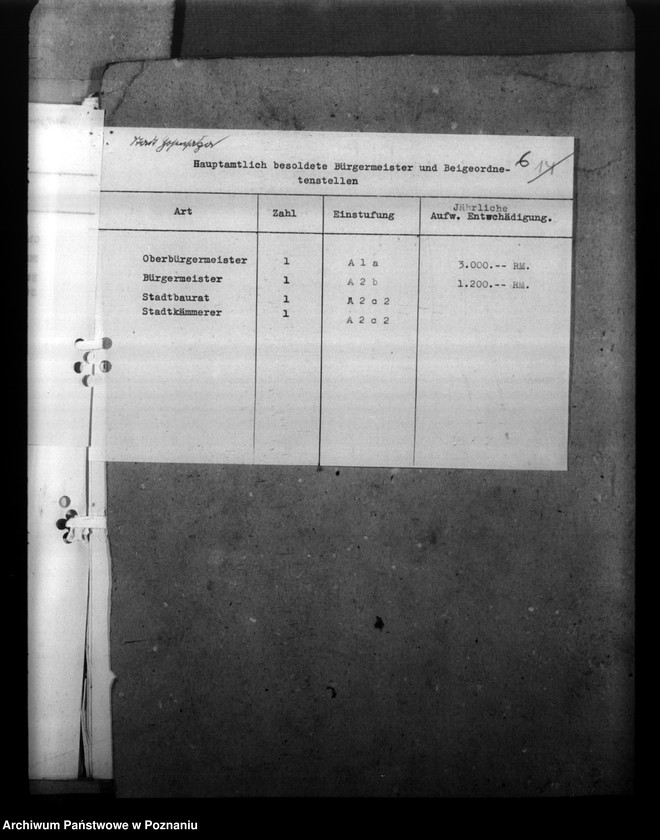 6 14
Hauptamtlich besoldete Bürgermeister und Beigeordne-
tenstellen
Art Zahl Einstufung Jährliche
Aufw. Entschädigung.
Oberbürgermeister 1 A 1 a 3.000.-- RM.
Bürgermeister 1 A 2 b 1.200.-- RM.
Stadtbaurat 1 A 2 c 2
Stadtkämmerer 1 A 2 c 2
Archiwum Państwowe w Poznaniu